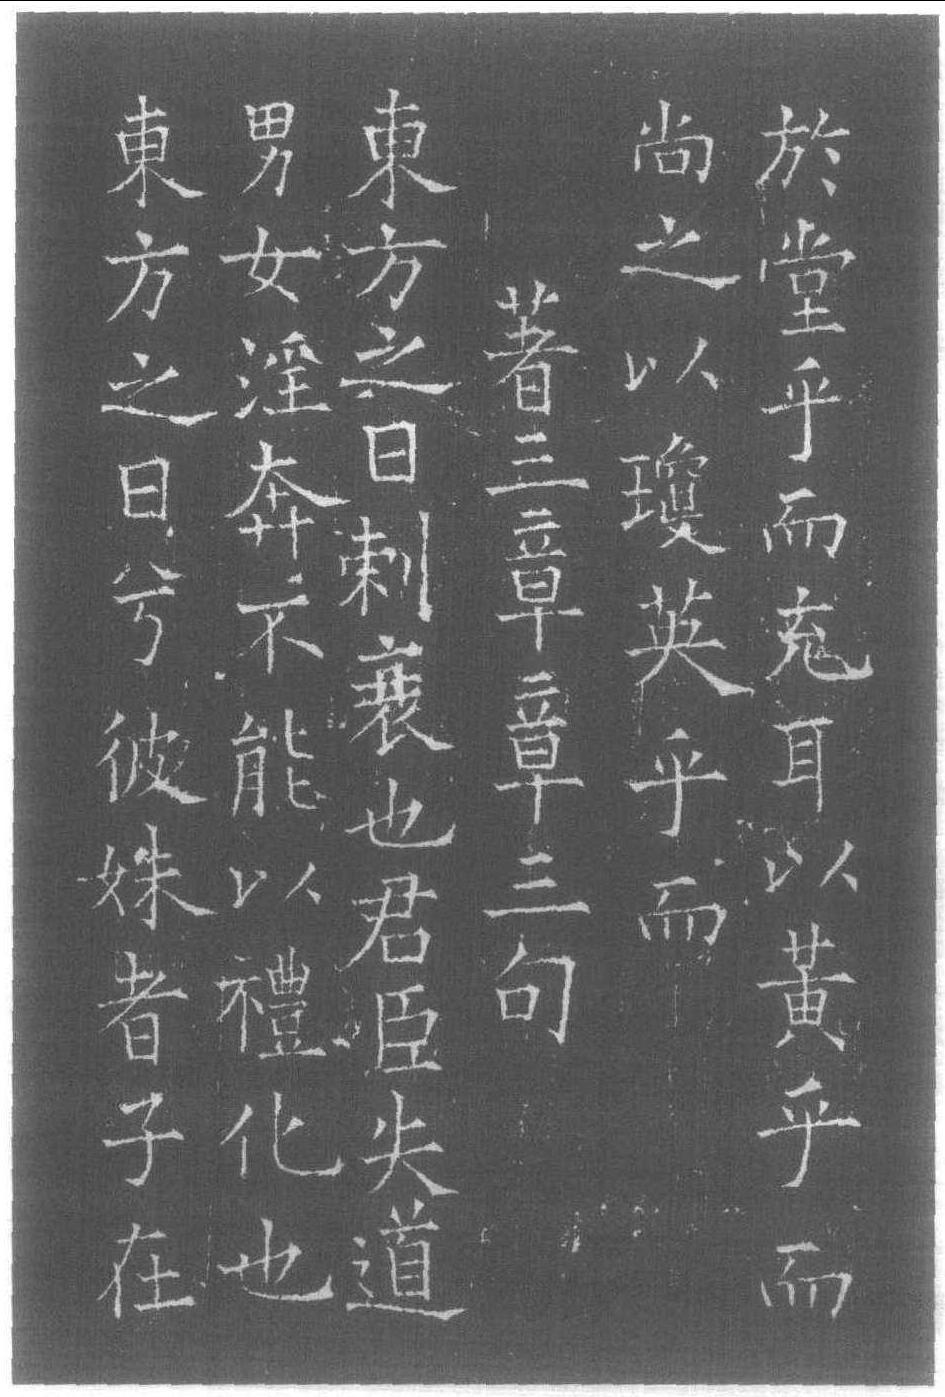 於堂乎而充耳以黃乎而
尚之以瓊英乎而
著三章章三句
東方之日刺衰也君臣失道
男女淫奔不能以禮化也
東方之日兮彼姝者子在